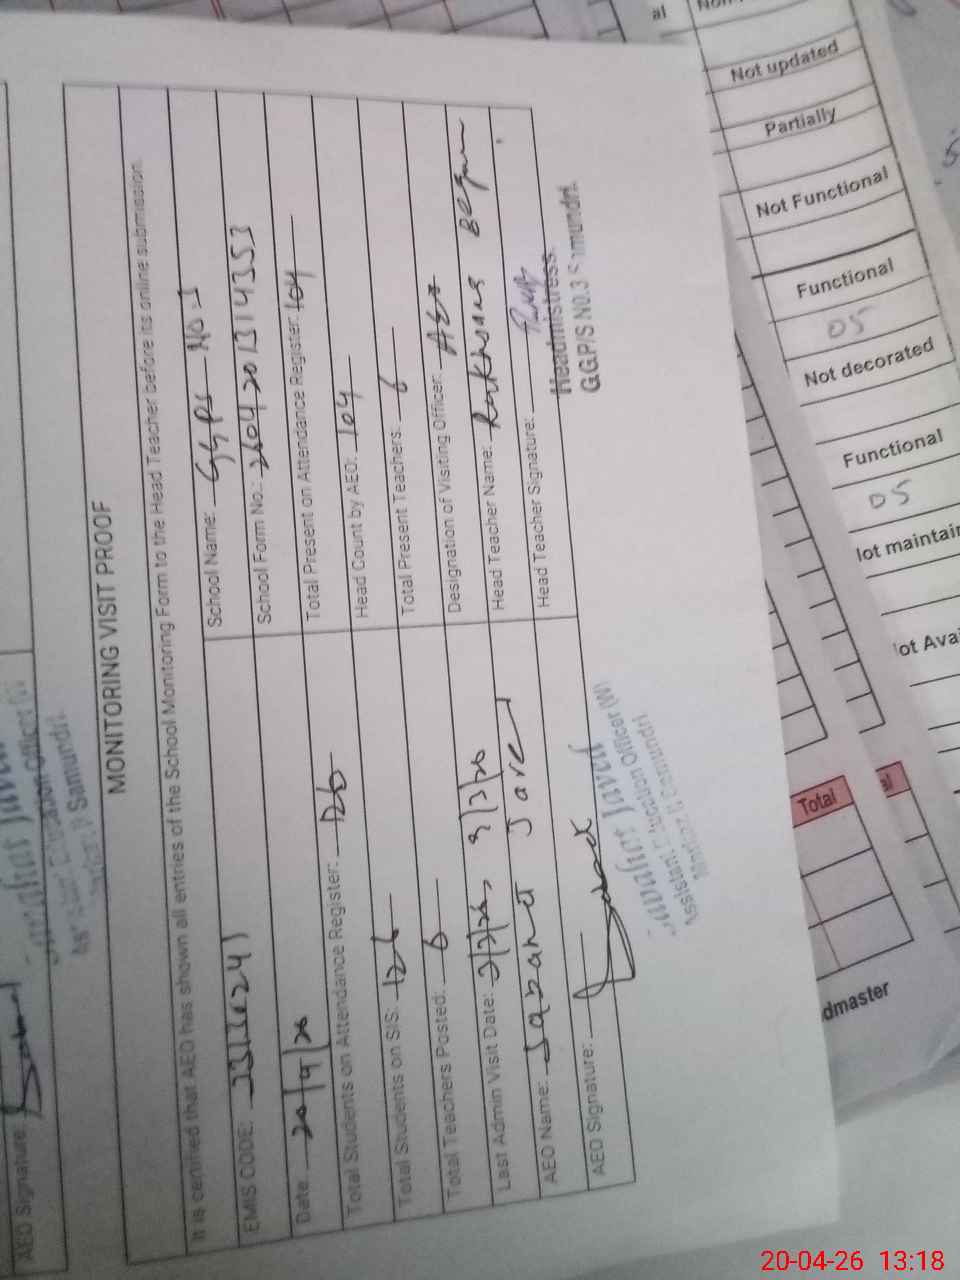 MONITORING VISIT PROOF
It is certified that AEO has shown all entries of the School Monitoring Form to the Head Teacher before its online submission.
EMIS CODE: School Name: GGPS No.3
School Form No.: 2604201314353
Date 20/4/26 Total Present on Attendance Register: 104
Total Students on Attendance Register: 126 Head Count by AEO: 104
Total Students on SIS: 126 Total Present Teachers: 6
Total Teachers Posted: 6 Designation of Visiting Officer: AEO
Last Admin Visit Date: Head Teacher Name: Rukhsana Begum
AEO Name: Javed Head Teacher Signature:
AEO Signature:
Headmistress.
GGP/S N0.3
Javed
Assistant Education Officer (W)
AEO Signature
Samundri.
al
Not updated
Partially
Not Functional
Functional
05
Not decorated
Functional
05
Total
al
dmaster
20-04-26 13:18